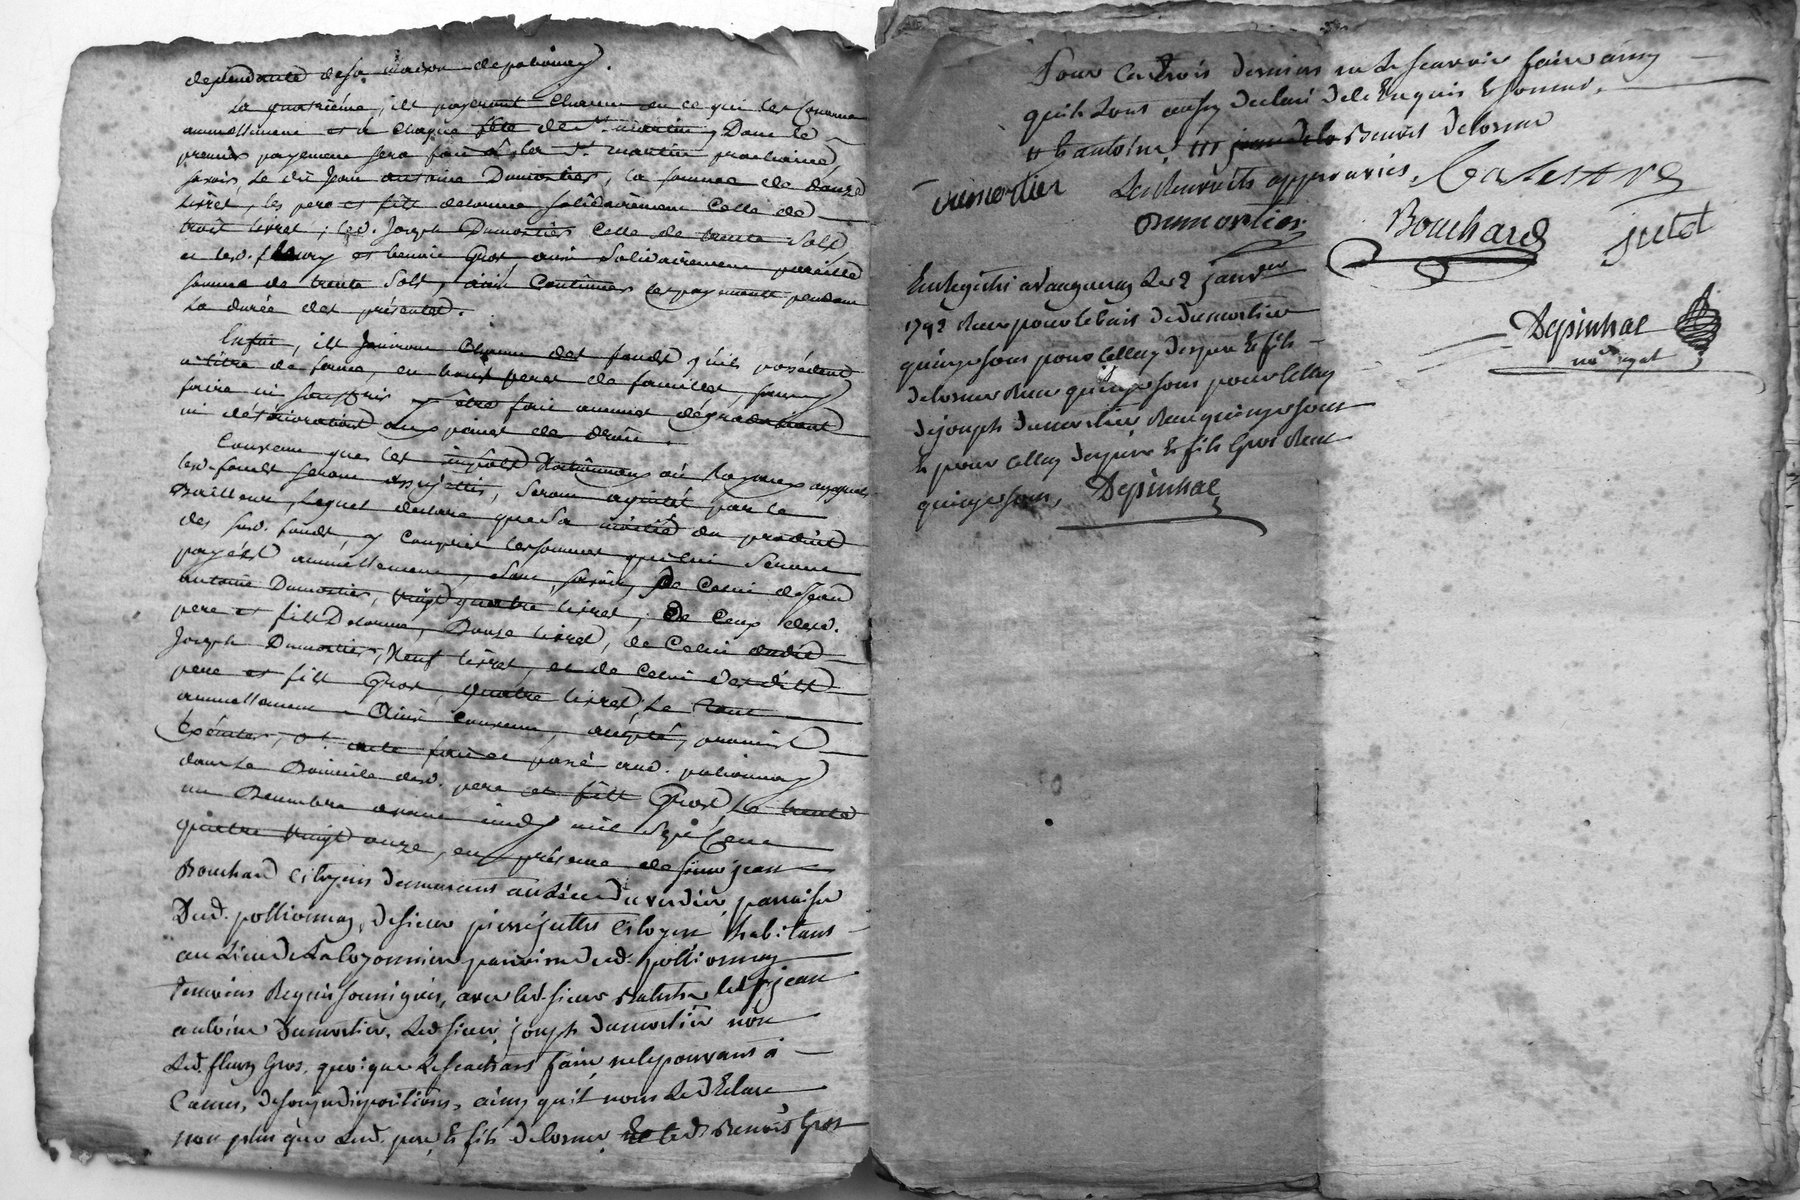 dependante de sa maison de polionnay.
La quatrième, ils payeront chacun en ce qui les concerne
annuellement et à chaque fête de St. martin, Dont le
premier payement sera fait à la St. martin prochaine,
savoir, le dit Jean antoine Dumortier, la somme de douze
livres, les pere et fils delorme solidairement celle de
trois livres, led. Joseph Dumortier celle de trente sols,
et led. fleury et benoit Gros aussi solidairement pareille
somme de trente sols, ainsi continuer les payments pendant
la durée des présentes.
Enfin, ils jouiront chacun des fonds qu'ils possèdent
à titre de ferme, en bons peres de familles, sans y
faire ni souffrir y être fait aucunes dégradations
ni détériorations aux peines de droit.
Convenu que les impôts Nationnaux ou Royaux auxquels
lesd. fonds seront assujettis, seront acquités par le
Bailleur, lequel declare que la moitié du produit
des susd. fonds y compris les sommes qui lui seront
payées annuellement, sont savoir, de celui de Jean
antoine Dumortier, vingt quatre livres, de ceux desd.
pere et fils Delorme, Douze livres, de celui dudit
Joseph Dumortier, Neuf livres, et de celui desdits
pere et fils Gros, quatre livres, le tout
annuellement. Ainsi convenu, accepté, promis
Exécuter, &c. acte fait et passé aud. polionnay
dans le Domicile desd. pere et fils Gros, le trente
un Decembre avant midy mil sept Cent
quatre vingt onze, en présence de sieur jean
Bouchard Citoyen demeurant au Lieu du verdier, parroisse
Dud. pollionnay, de sieur pierre jullet Citoyen habitant
au Lieu de La parroisse dud. pollionnay
Temoins Requis soussignés, avec led. sieur et led. jean
antoine Dumortier, Led. sieur joseph dumortier non
Led. fleury Gros, quoique Le sachant faire, ne le pouvant à
Cause, de son indisposition, ainsy qu'il nous Le déclare
non plus que Lesd. pere & fils delorme, & led. Benoit Gros
Pour Ces trois derniers ne Le scavoir faire ainsy
quils L'ont aussy declaré de ce Enquis & sommé.
antoine, Benoit delorme
Dumortier Les Renvoits approuvés,
Dumortier Bouchard jullet
Enregistré a vaugneray Le 2 janvier
1792 Reçu pour le bail de dumortier
quinze sous pour Celluy des pere & fils
delorme Reçu quinze sous pour Celluy
de joseph dumortier Reçu quinze sous
& pour Celluy des pere & fils Gros Reçu
quinze sous, Depinhac
Depinhac
nore royal